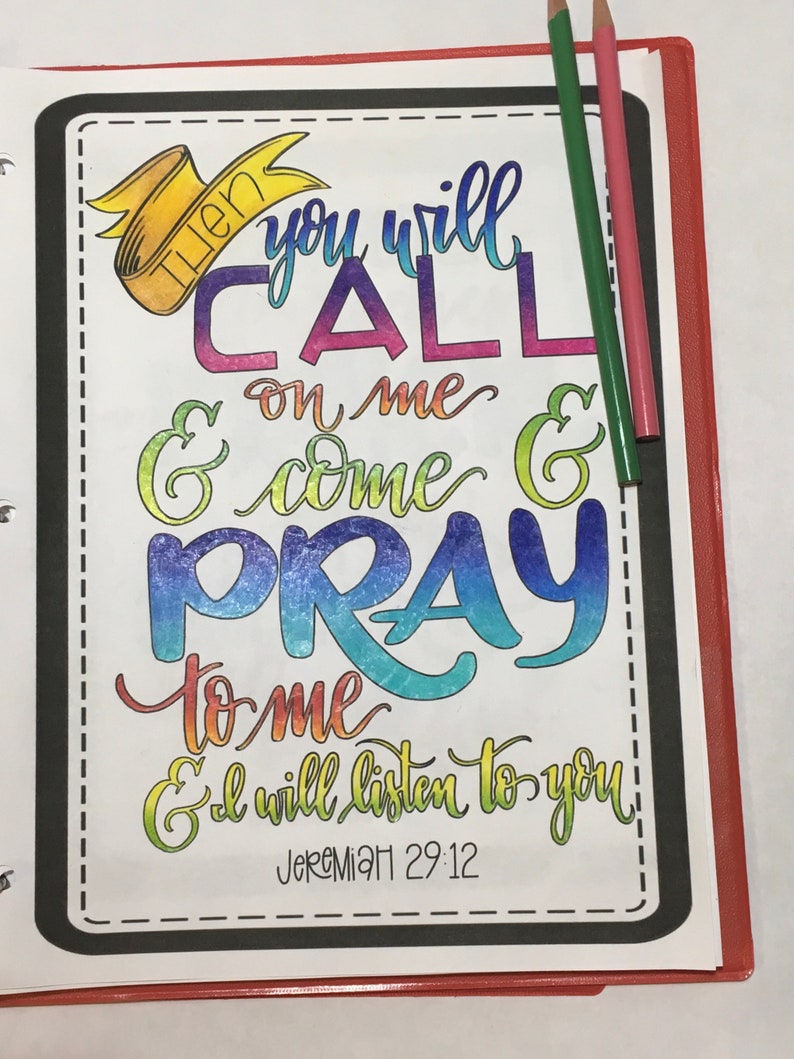 THEN
you will
CALL
on me
& come &
PRAY
to me
& I will listen to you
JEREMIAH 29:12